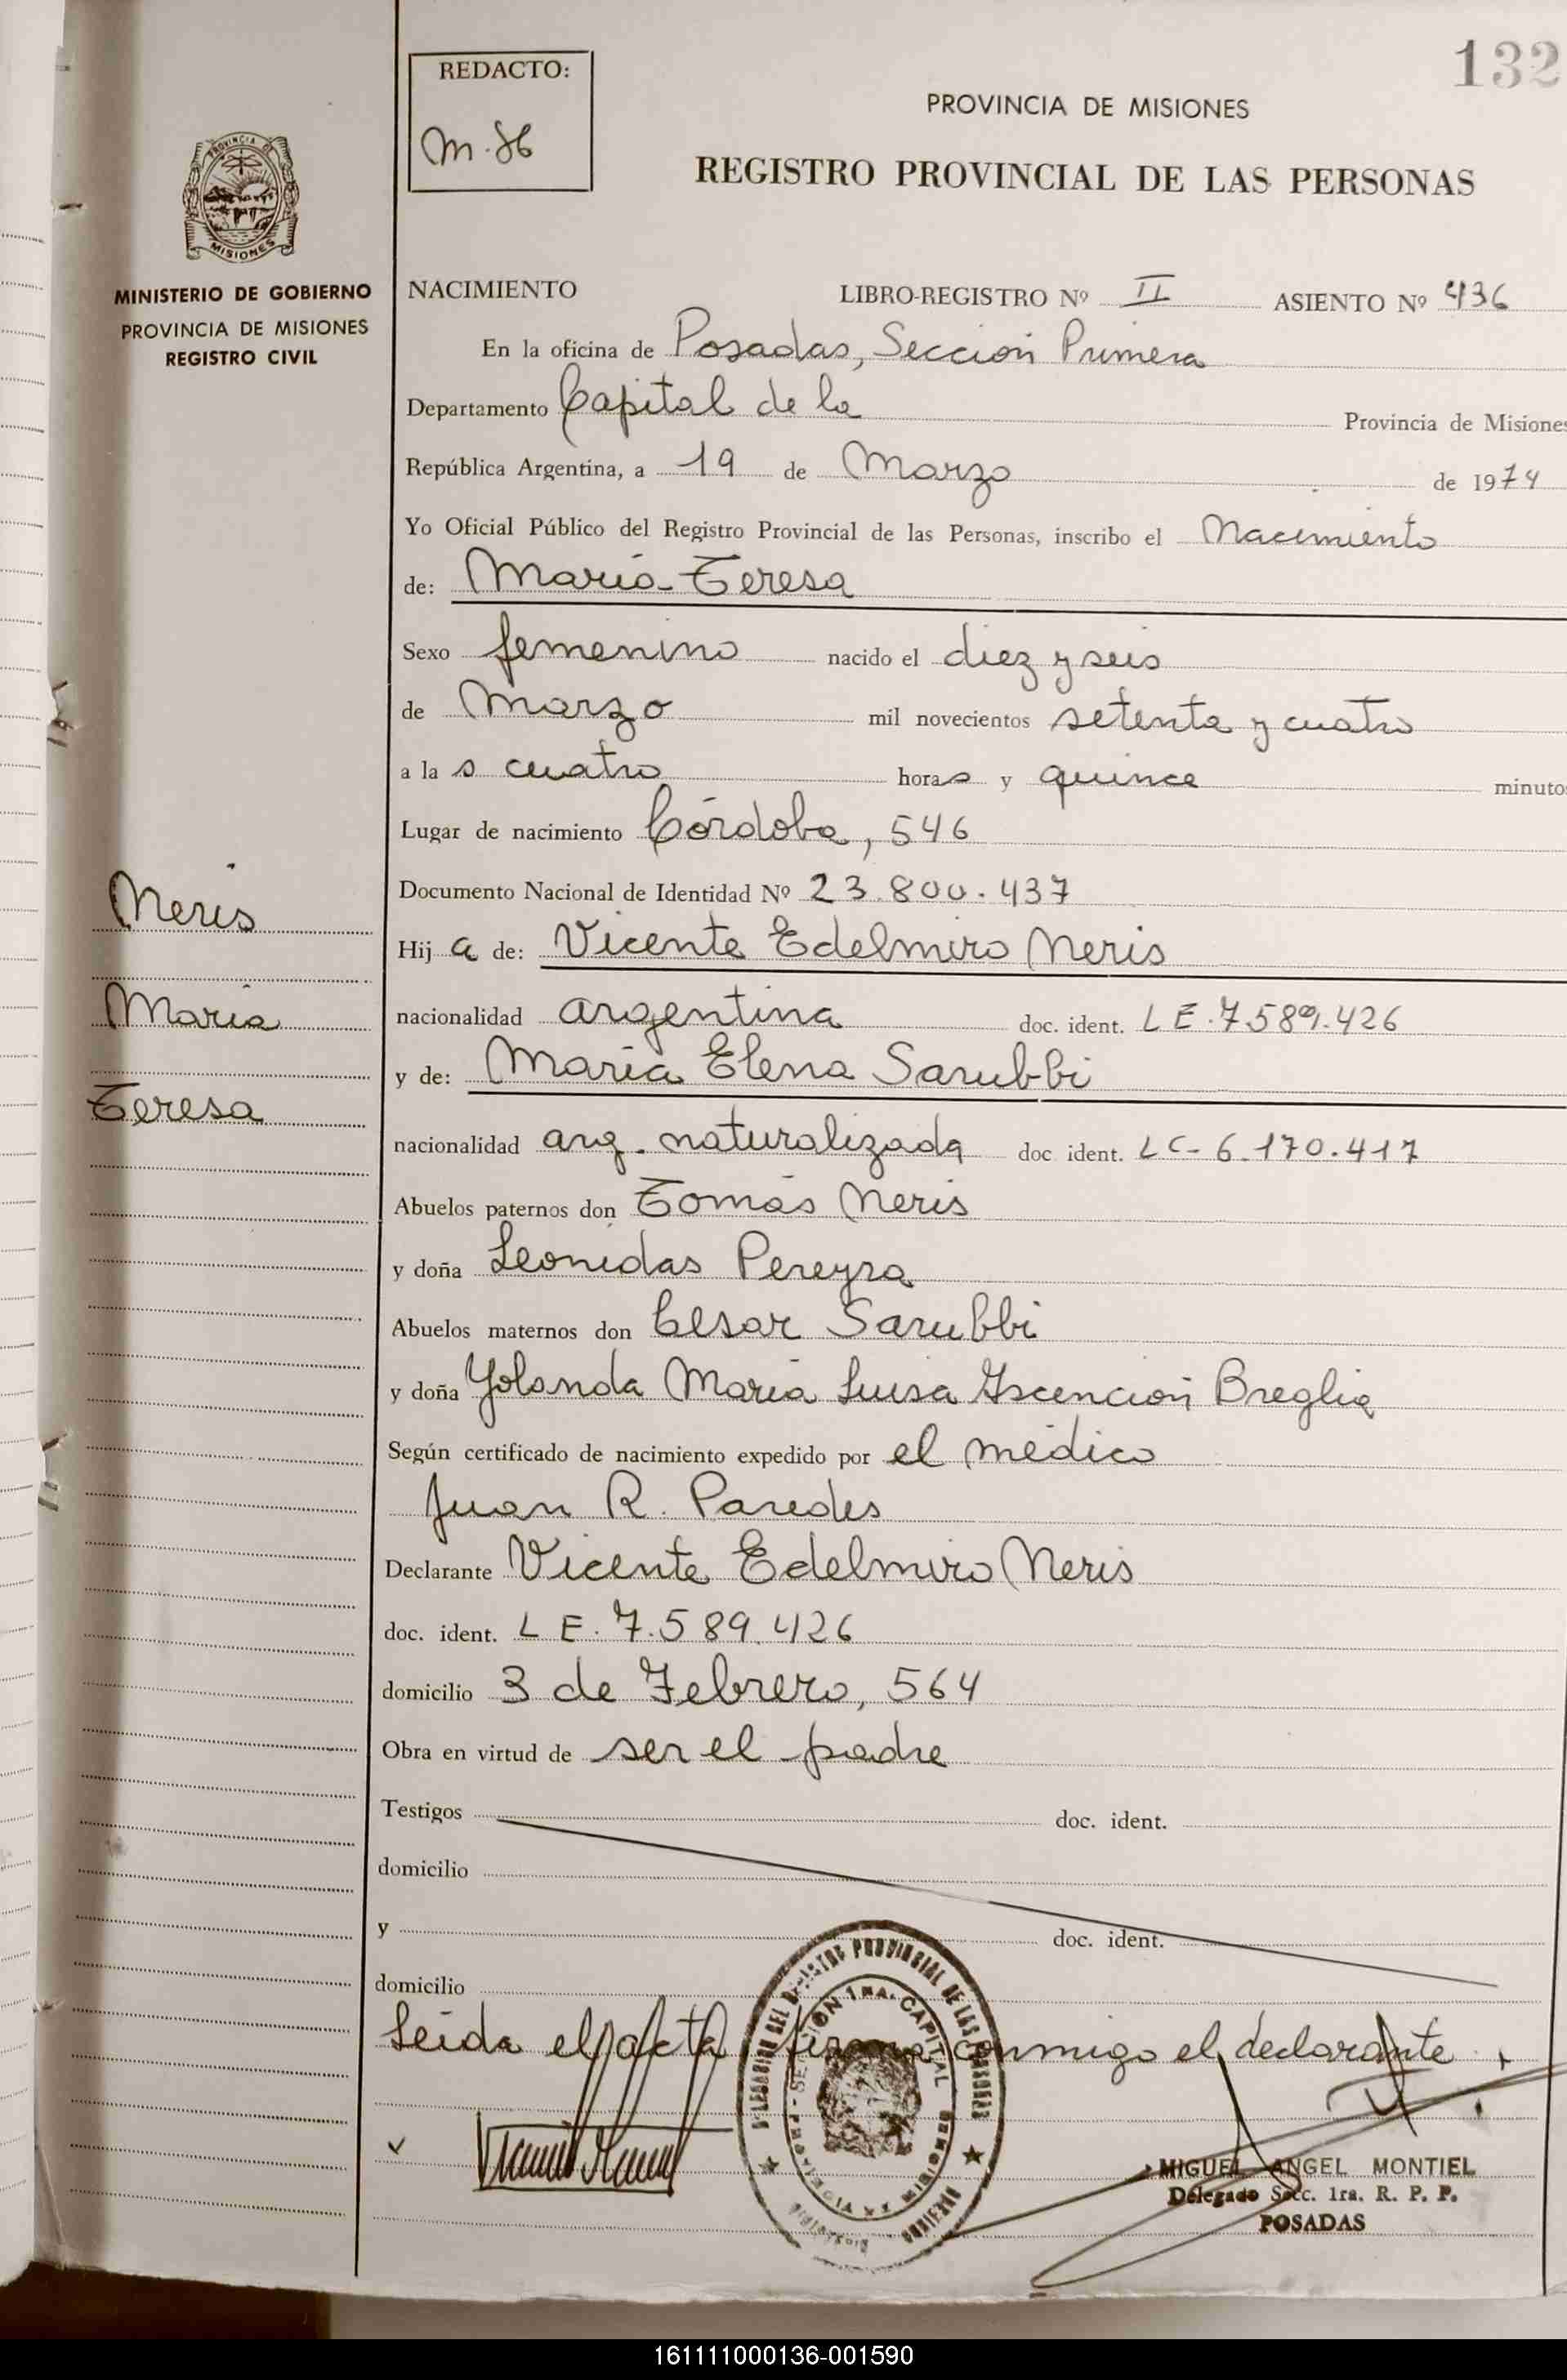 132
REDACTO:
PROVINCIA DE MISIONES
REGISTRO PROVINCIAL DE LAS PERSONAS
PROVINCIA DE
MISIONES
MINISTERIO DE GOBIERNO
PROVINCIA DE MISIONES
REGISTRO CIVIL
NACIMIENTO LIBRO-REGISTRO Nº II ASIENTO Nº 436
En la oficina de Posadas, Sección Primera
Departamento Capital de la Provincia de Misiones
República Argentina, a 19 de Marzo de 1974
Yo Oficial Público del Registro Provincial de las Personas, inscribo el Nacimiento
de: María Teresa
Sexo femenino nacido el diez y seis
de Marzo mil novecientos setenta y cuatro
a la s cuatro horas y quince minutos
Lugar de nacimiento Córdoba, 546
Documento Nacional de Identidad Nº 23.800.437
Neris
Hij a de: Vicente Edelmiro Neris
María
nacionalidad argentina doc. ident. L E. 7.589.426
y de: María Elena Sarubbi
Teresa
nacionalidad arg. naturalizada doc ident. L C- 6.170.417
Abuelos paternos don Tomás Neris
y doña Leonidas Pereyra
Abuelos maternos don César Sarubbi
y doña Yolanda María Luisa Ascención Breglia
Según certificado de nacimiento expedido por el médico
Juan R. Paredes
Declarante Vicente Edelmiro Neris
doc. ident. L E. 7.589.426
domicilio 3 de Febrero, 564
Obra en virtud de ser el padre
Testigos doc. ident.
domicilio
y doc. ident.
domicilio
Leída el acta firma conmigo el declarante
MIGUEL ANGEL MONTIEL
Delegado Secc. 1ra. R. P. P.
POSADAS
161111000136-001590